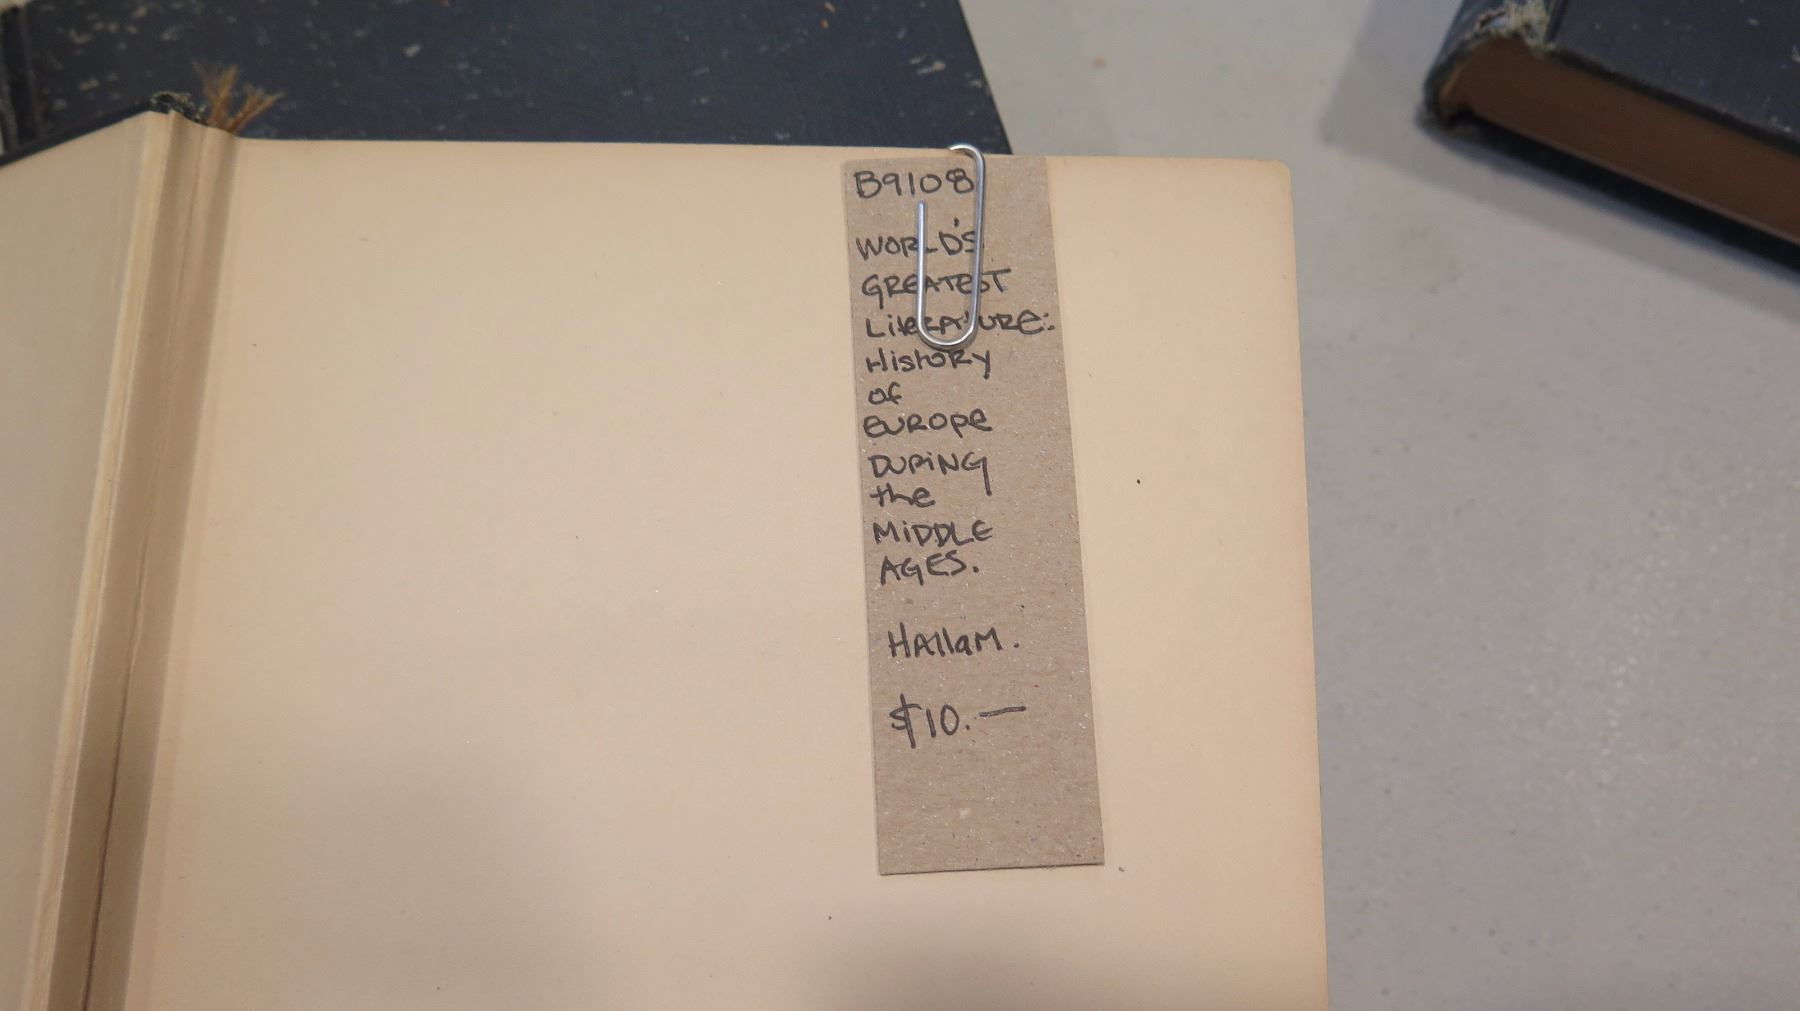 B9108
WORLD'S
GREATEST
LiteRAtURe:
HistORy
of
EUROpe
DURiNG
the
MiDDLE
AGES.
HAllaM.
$10.—